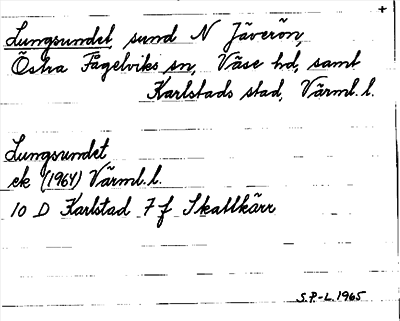 +
Lungsundet, sund N Jäverön,
Östra Fågelviks sn, Väse hd, samt
Karlstads stad, Värml. l.
Lungsundet
ek (1964) Värml. l.
10 D Karlstad 7 f Skattkärr
S.P-L. 1965